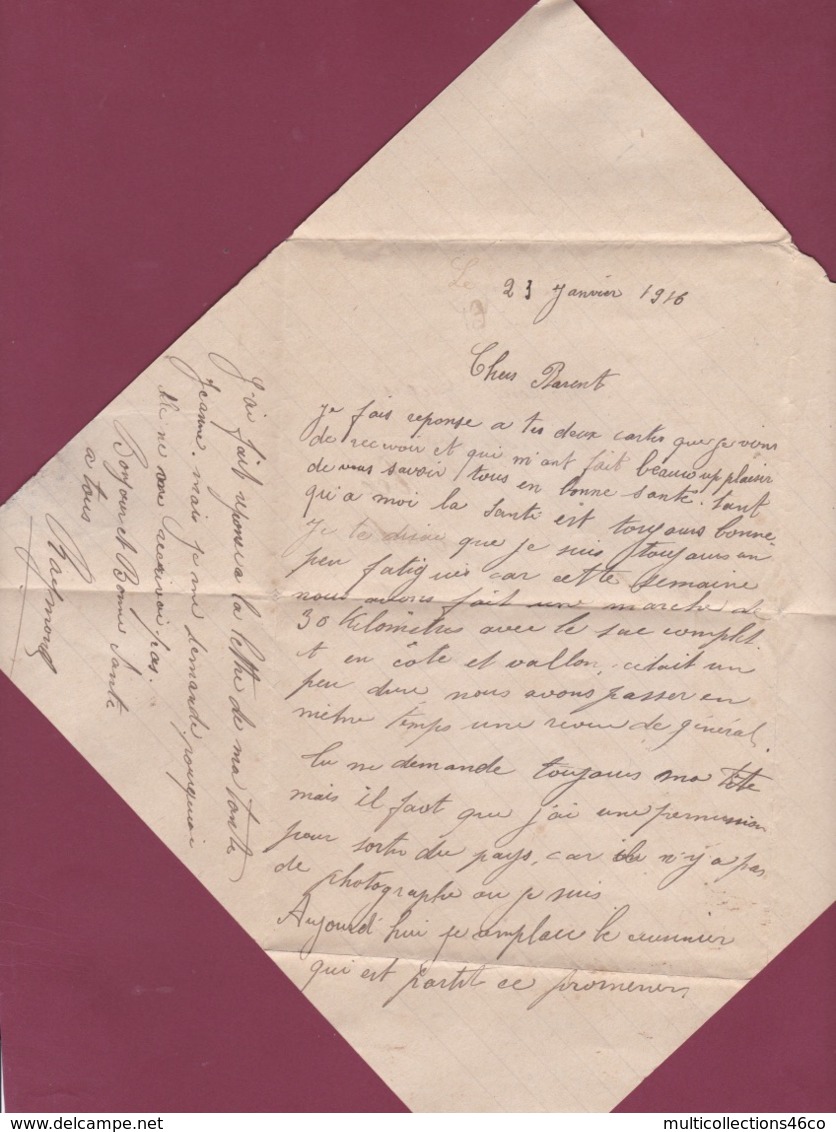 Le 23 Janvier 1916
Chers Parent
Je fais reponse a tes deux cartes que je viens
de recevoir et qui m'ont fait beaucoup plaisir
de vous savoir tous en bonne santé. tant
qu'a moi la santé est toujours bonne
Je te dirai que je suis toujours un
peu fatigués car cette semaine
nous avons fait une marche de
30 Kilomètres avec le sac complet
et en côte et vallon, cétait un
peu dure nous avons passer en
même temps une revue de général.
Tu me demande toujours ma tête
mais il faut que j'ai une permission
pour sortir du pays, car il n'y a pas
de photographe ou je suis
Aujourd'hui je remplace le cuisinier
qui est partit ce promener
J'ai fait reponse a la lettre de ma tante
Jeanne. mais je me demande pourquoi
elle ne recevoir pas.
Bonjour et Bonne Santé
a tous
Raymond
multicollections46co